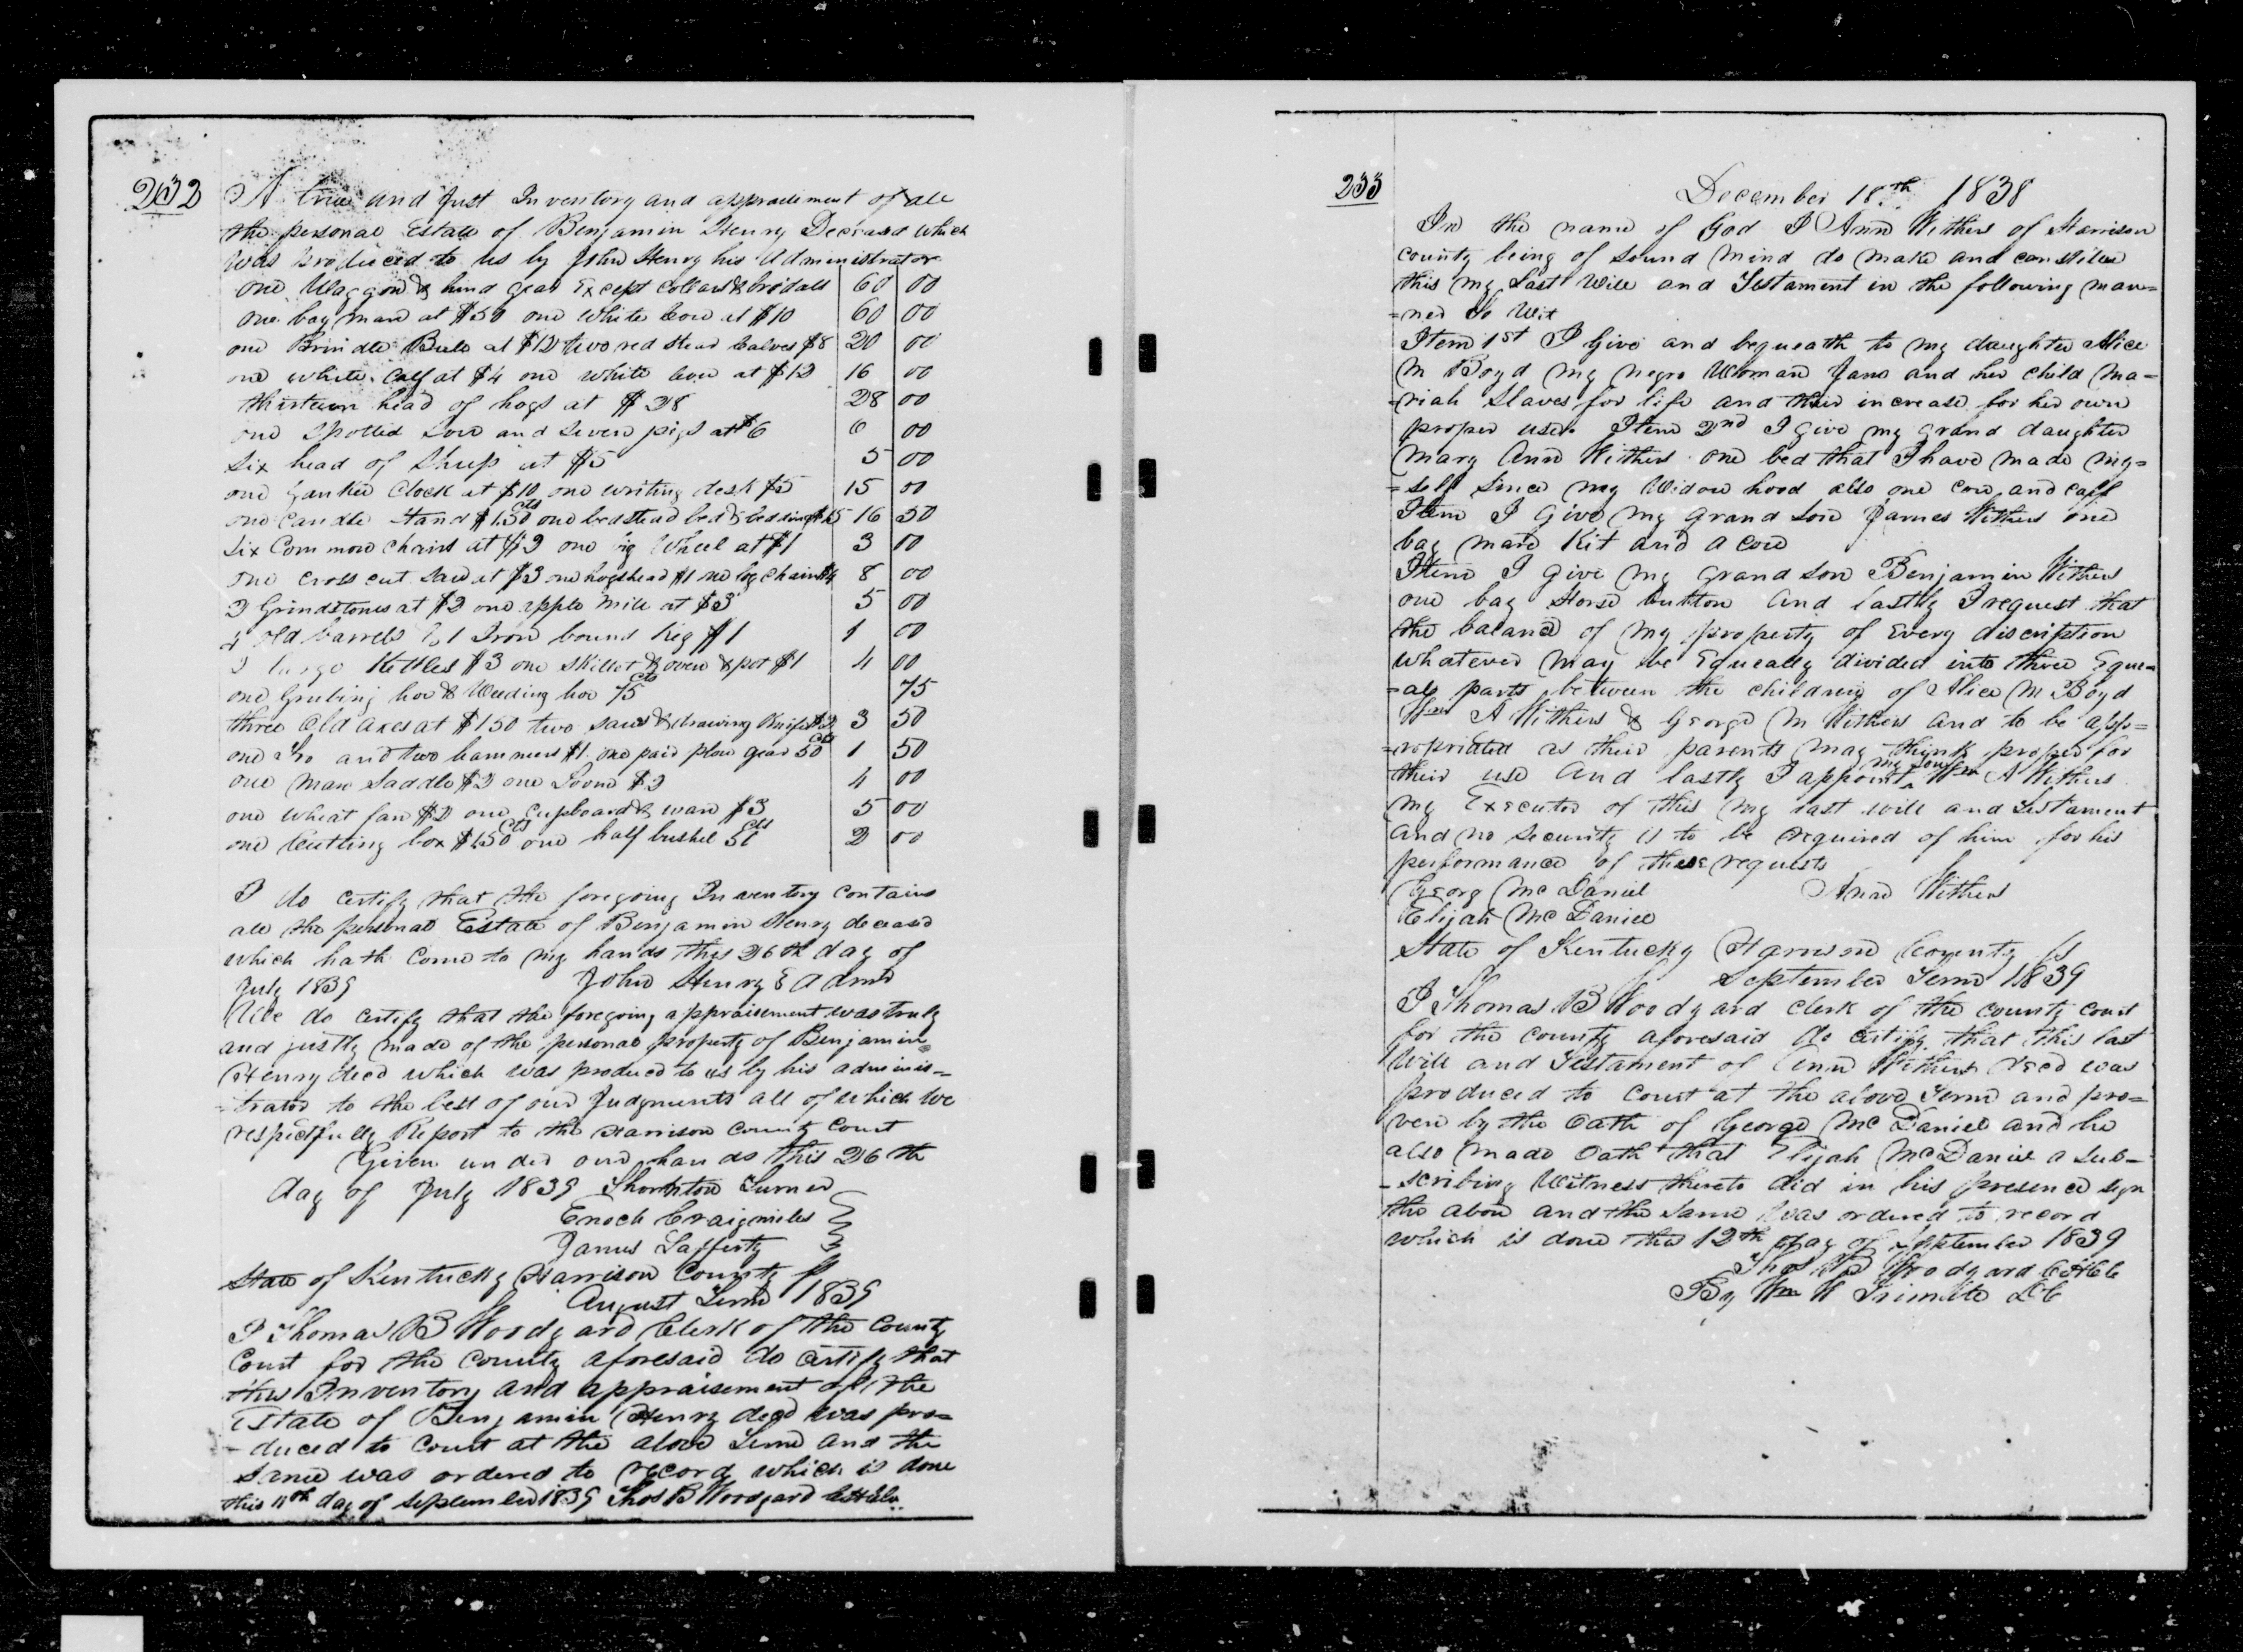 232
A true and Just Inventory and appraisement of all
the personal Estate of Benjamin Henry Deceasd which
was produced to us by John Henry his Administrator
one Waggon & hind gear Except collars & bridals 60 00
one bay mare at $50 one white cow at $10 60 00
one Brindle Bull at $12 two red Stear Calves $8 20 00
one white Calf at $4 one white cow at $12 16 00
thirteen head of hogs at $28 28 00
one Spotted Sow and Seven pigs at $6 6 00
Six head of Sheep at $5 5 00
one Yankee Clock at $10 one writing desk $5 15 00
one Candle Stand $1.50 cts one bedstead bed & bedding $15 16 50
Six Common Chairs at $2 one big Wheel at $1 3 00
one cross cut saw at $3 one hogshead $1 one log chain $4 8 00
2 Grindstones at $2 one apple mill at $3 5 00
4 old barrels & 1 Iron bound Keg $1 1 00
2 large Kettles $3 one Skillet & oven & pot $1 4 00
one Grubing hoe & Weeding hoe 75 cts 75
three old axes at $1.50 two saws & drawing Knife $2 3 50
one Fro and two hammers $1. one pair plow gear 50 cts 1 50
one Man Saddle $2 one Loom $2 4 00
one wheat fan $2 one Cupboard & ware $3 5 00
one Cutting box $1.50 cts one half bushel 50 cts 2 00
I do certify that the foregoing Inventory contains
all the personal Estate of Benjamin Henry deceasd
which hath Come to my hands this 26th day of
July 1839 John Henry Admr
We do certify that the foregoing appraisement was truly
and justly made of the personal property of Benjamin
Henry decd which was produced to us by his adminis=
=trator to the best of our Judgments all of which we
respectfully Report to the Harrison County Court
Given under our hands this 26th
day of July 1839 Thornton Turner
Enoch Craigmiles
James Lafferty
State of Kentucky Harrison County ss
August Term 1839
I Thomas B Woodyard Clerk of the County
Court for the County aforesaid do certify that
this Inventory and appraisement of the
Estate of Benjamin Henry decd was pro=
-duced to Court at the above Term and the
same was ordered to record which is done
this 11th day of September 1839 Thos B Woodyard
233
December 18th 1838
In the name of God I Ann Withers of Harrison
county being of sound mind do make and constitue
this my Last Will and Testament in the following man=
=ner To Wit
Item 1st I Give and bequeath to my daughter Alice
M Boyd my negro Woman Jane and her child Ma=
=riah Slaves for life and their increase for her own
proper use. Item 2nd I Give my grand daughter
Mary Ann Withers one bed that I have made my=
=self Since my Widow hood also one cow and calf
Item I Give my grand son James Withers one
bay mare Kit and a cow
Item I Give my grand son Benjamin Withers
one bay Horse button and lastly I request that
the balance of my property of Every discription
whatever may be Equeally divided into three Eque=
=al parts between the children of Alice M Boyd
Wm A Withers & George M Withers and to be app=
=ropriated as their parents may think proper for
their use and lastly I appoint my son Wm A Withers
my Executor of this my last will and Testament
and no Security is to be required of him for his
performance of these requests
Georg McDaniel Ann Withers
Elijah McDaniel
State of Kentucky Harrison County ss
September Term 1839
I Thomas B Woodyard clerk of the county court
for the county aforesaid do certify that this last
Will and Testament of Ann Withers Decd was
produced to Court at the above Term and pro=
ven by the Oath of George McDaniel and he
also made Oath that Elijah McDaniel a sub-
-scribing Witness thereto did in his presence sign
the above and the same was ordered to record
which is done this 12th day of September 1839
Thos B Woodyard
By Wm W Trimble DC